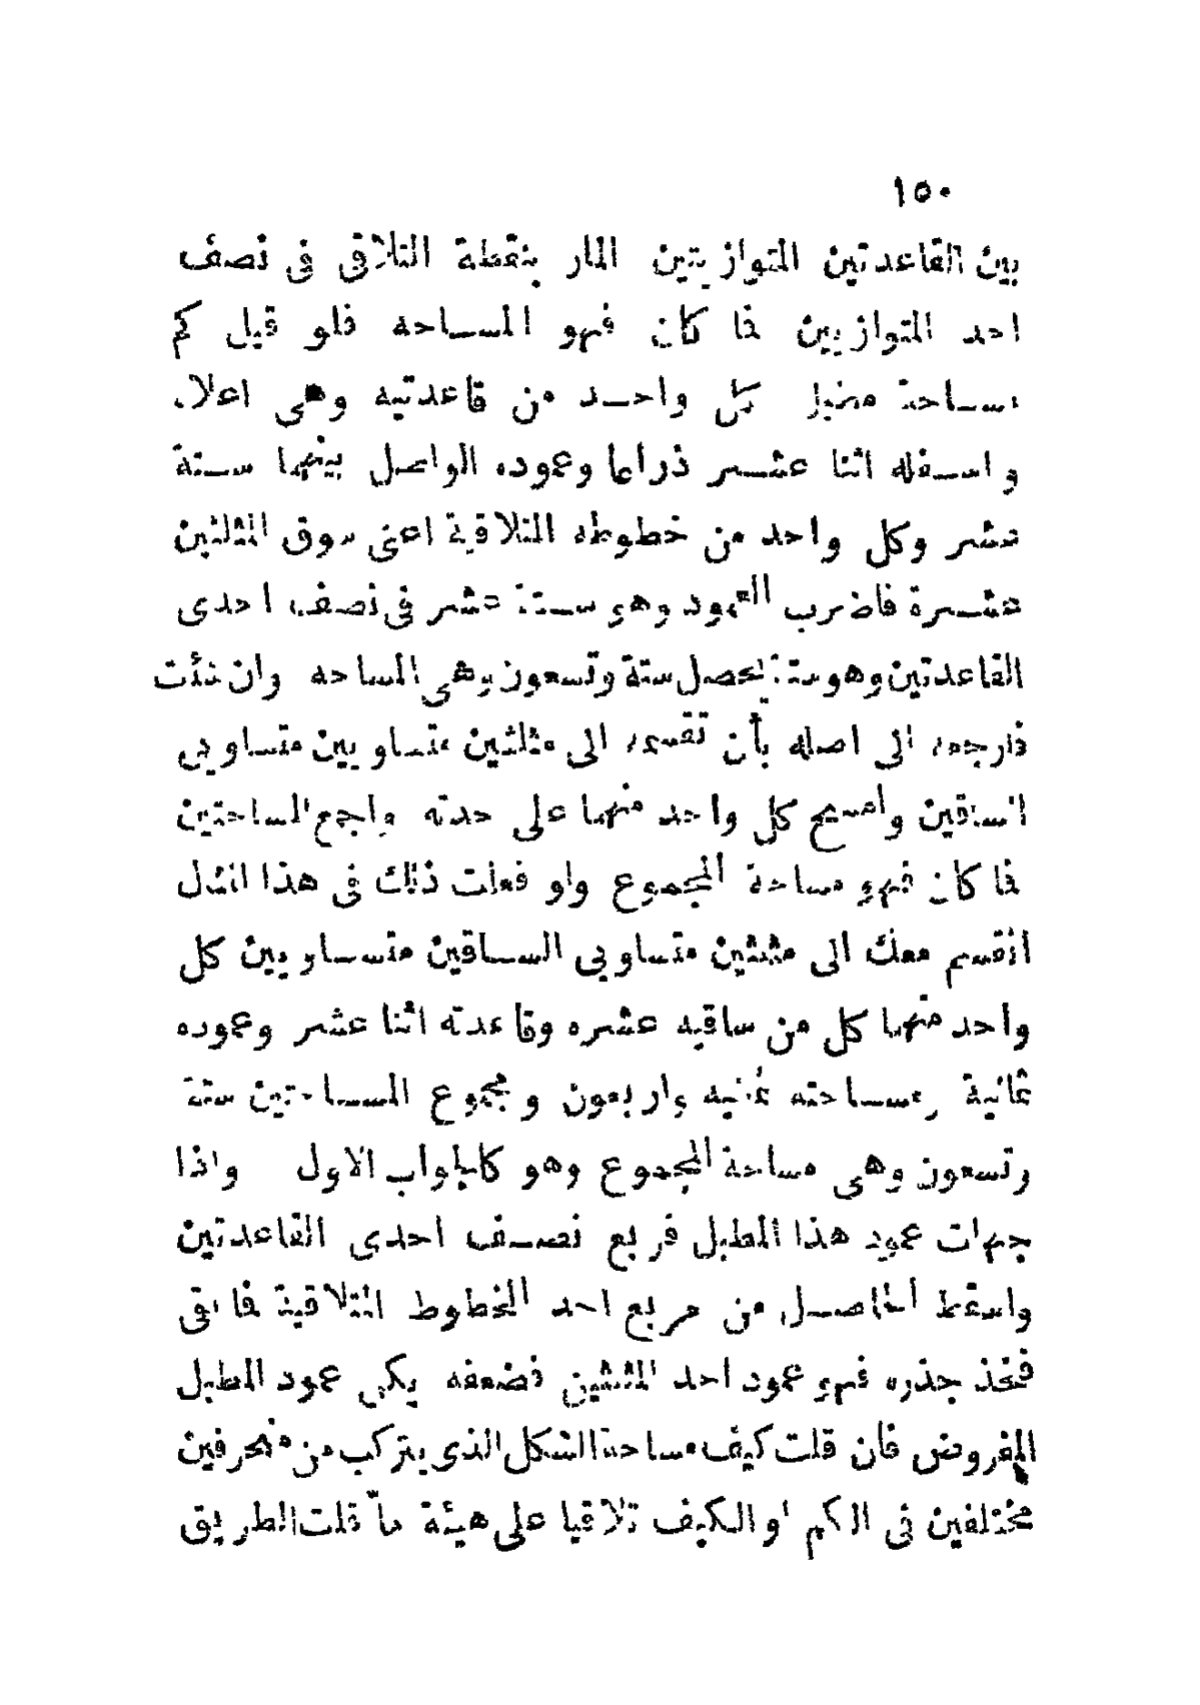 ١٥٠
بين القاعدتين المتوازيتين المار بنقطة التلاقى فى نصف
احد المتوازيين فما كان فهو المساحه فلو قيل كم
مساحة مطبل كل واحد من قاعدتيه وهى اعلاه
واسفله اثنا عشر ذراعا وعموده الواصل بينهما ستة
عشر وكل واحد من خطوطه المتلاقية اعنى سوق المثلثين
عشرة فاضرب العمود وهو ستة عشر فى نصف احدى
القاعدتين وهو ستة يحصل ستة وتسعون وهى المساحه وان شئت
فارجعه الى اصله بأن تقسمه الى مثلثين متساويين متساويى
الساقين وامسح كل واحد منهما على حدته واجمع المساحتين
فما كان فهو مساحة المجموع ولو فعلت ذلك فى هذا المثل
انقسم معك الى مثلثين متساويى الساقين متساويين كل
واحد منهما كل من ساقيه عشره وقاعدته اثنا عشر وعموده
ثمانية ومساحته ثمنيه واربعون ومجموع المساحتين ستة
وتسعون وهى مساحة المجموع وهو كالجواب الاول واذا
جهلت عمود هذا المطبل فربع نصف احدى القاعدتين
واسقط الحاصل من مربع احد الخطوط المتلاقية فما بقى
فخذ جذره فهو عمود احد المثلثين فضعفه يكن عمود المطبل
المفروض فان قلت كيف مساحة الشكل الذى يتركب من منحرفين
مختلفين فى الكم او الكيف تلاقيا على هيئة ما قلت الطريق